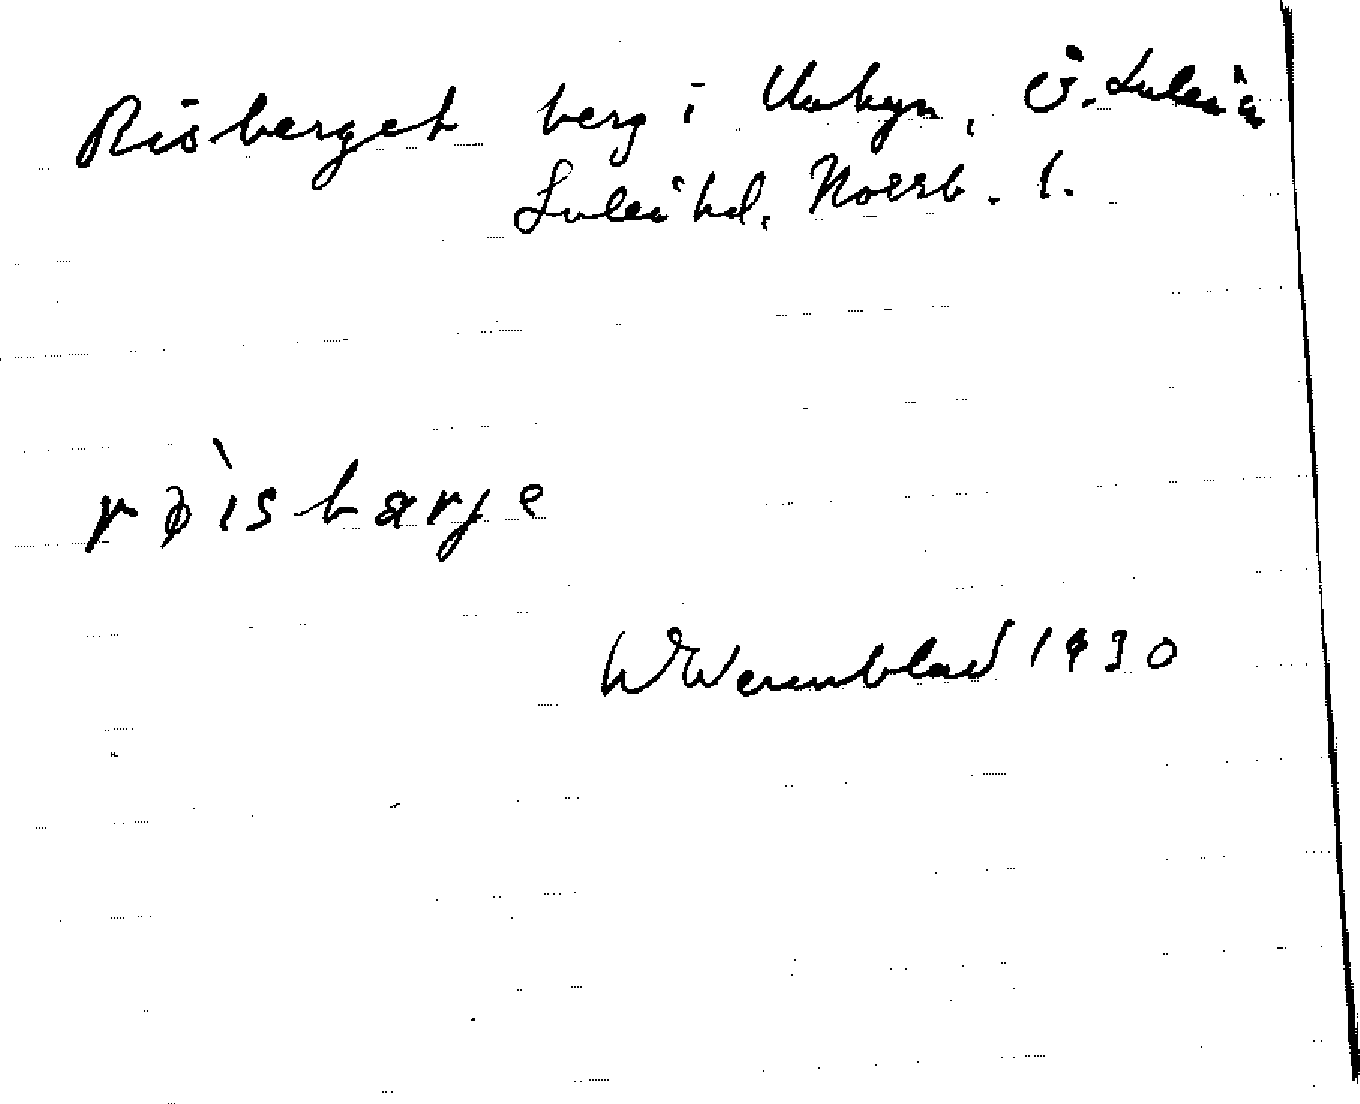 Risberget berg i Unbyn, Ö. Luleå
Luleå hd. Norrb. l.
rø̀isbærje
W Wennblad 1930